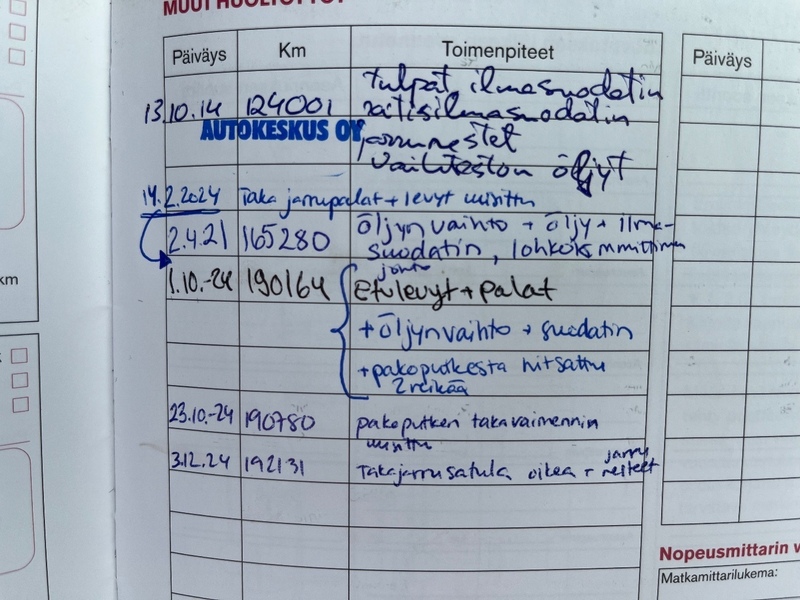 MUUT HUOLTOTYÖT
Päiväys Km Toimenpiteet
tulpat ilmasuodatin
13.10.14 124001 raitisilmasuodatin
AUTOKESKUS OY
jarrunestet
vaihteiston öljyt
14.2.2024 Taka jarrupalat + levyt uusittu
2.4.21 165280 öljynvaihto + öljy + ilma-
suodatin, lohkoks mmittimen
johto
1.10.-24 190164 Etulevyt + palat
+ öljynvaihto + suodatin
+ pakoputkesta hitsattu
2 reikää
23.10.-24 190780 pakoputken takavaimennin
uusittu
3.12.24 192131 Takajarrusatula oikea + jarru
nesteet
Päiväys
km
Nopeusmittarin v
Matkamittarilukema: